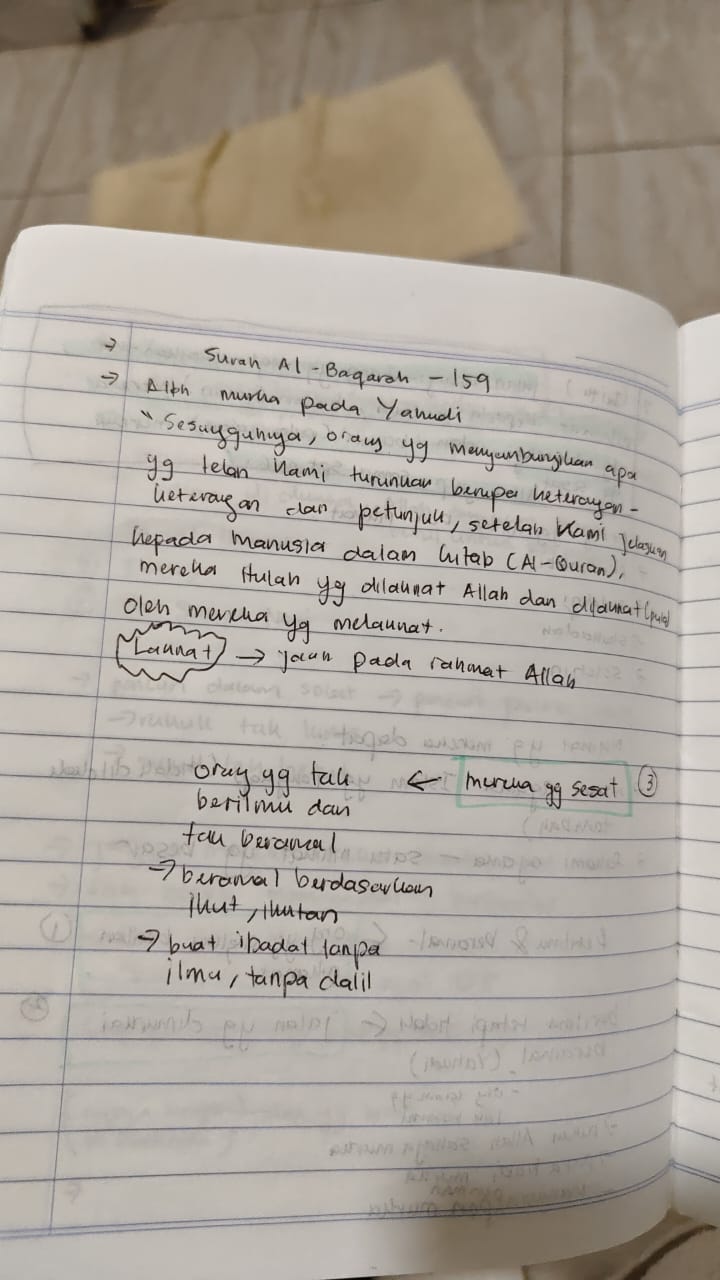 → Surah Al-Baqarah - 159
→ Allh murka pada Yahudi
"Sesungguhnya, orang yg menyembunyikan apa
yg telah Kami turunkan berupa keterangan-
keterangan dan petunjuk, setelah Kami jelaskan
kepada manusia dalam kitab (Al-Quran),
mereka itulah yg dilaknat Allah dan dilaknat (pula)
oleh mereka yg melaknat.
Laknat → jauh pada rahmat Allah
orang yg tak ← mereka yg sesat ③
berilmu dan
tak beramal
→ beramal berdasarkan
ikut, ikutan
→ buat ibadat tanpa
ilmu, tanpa dalil